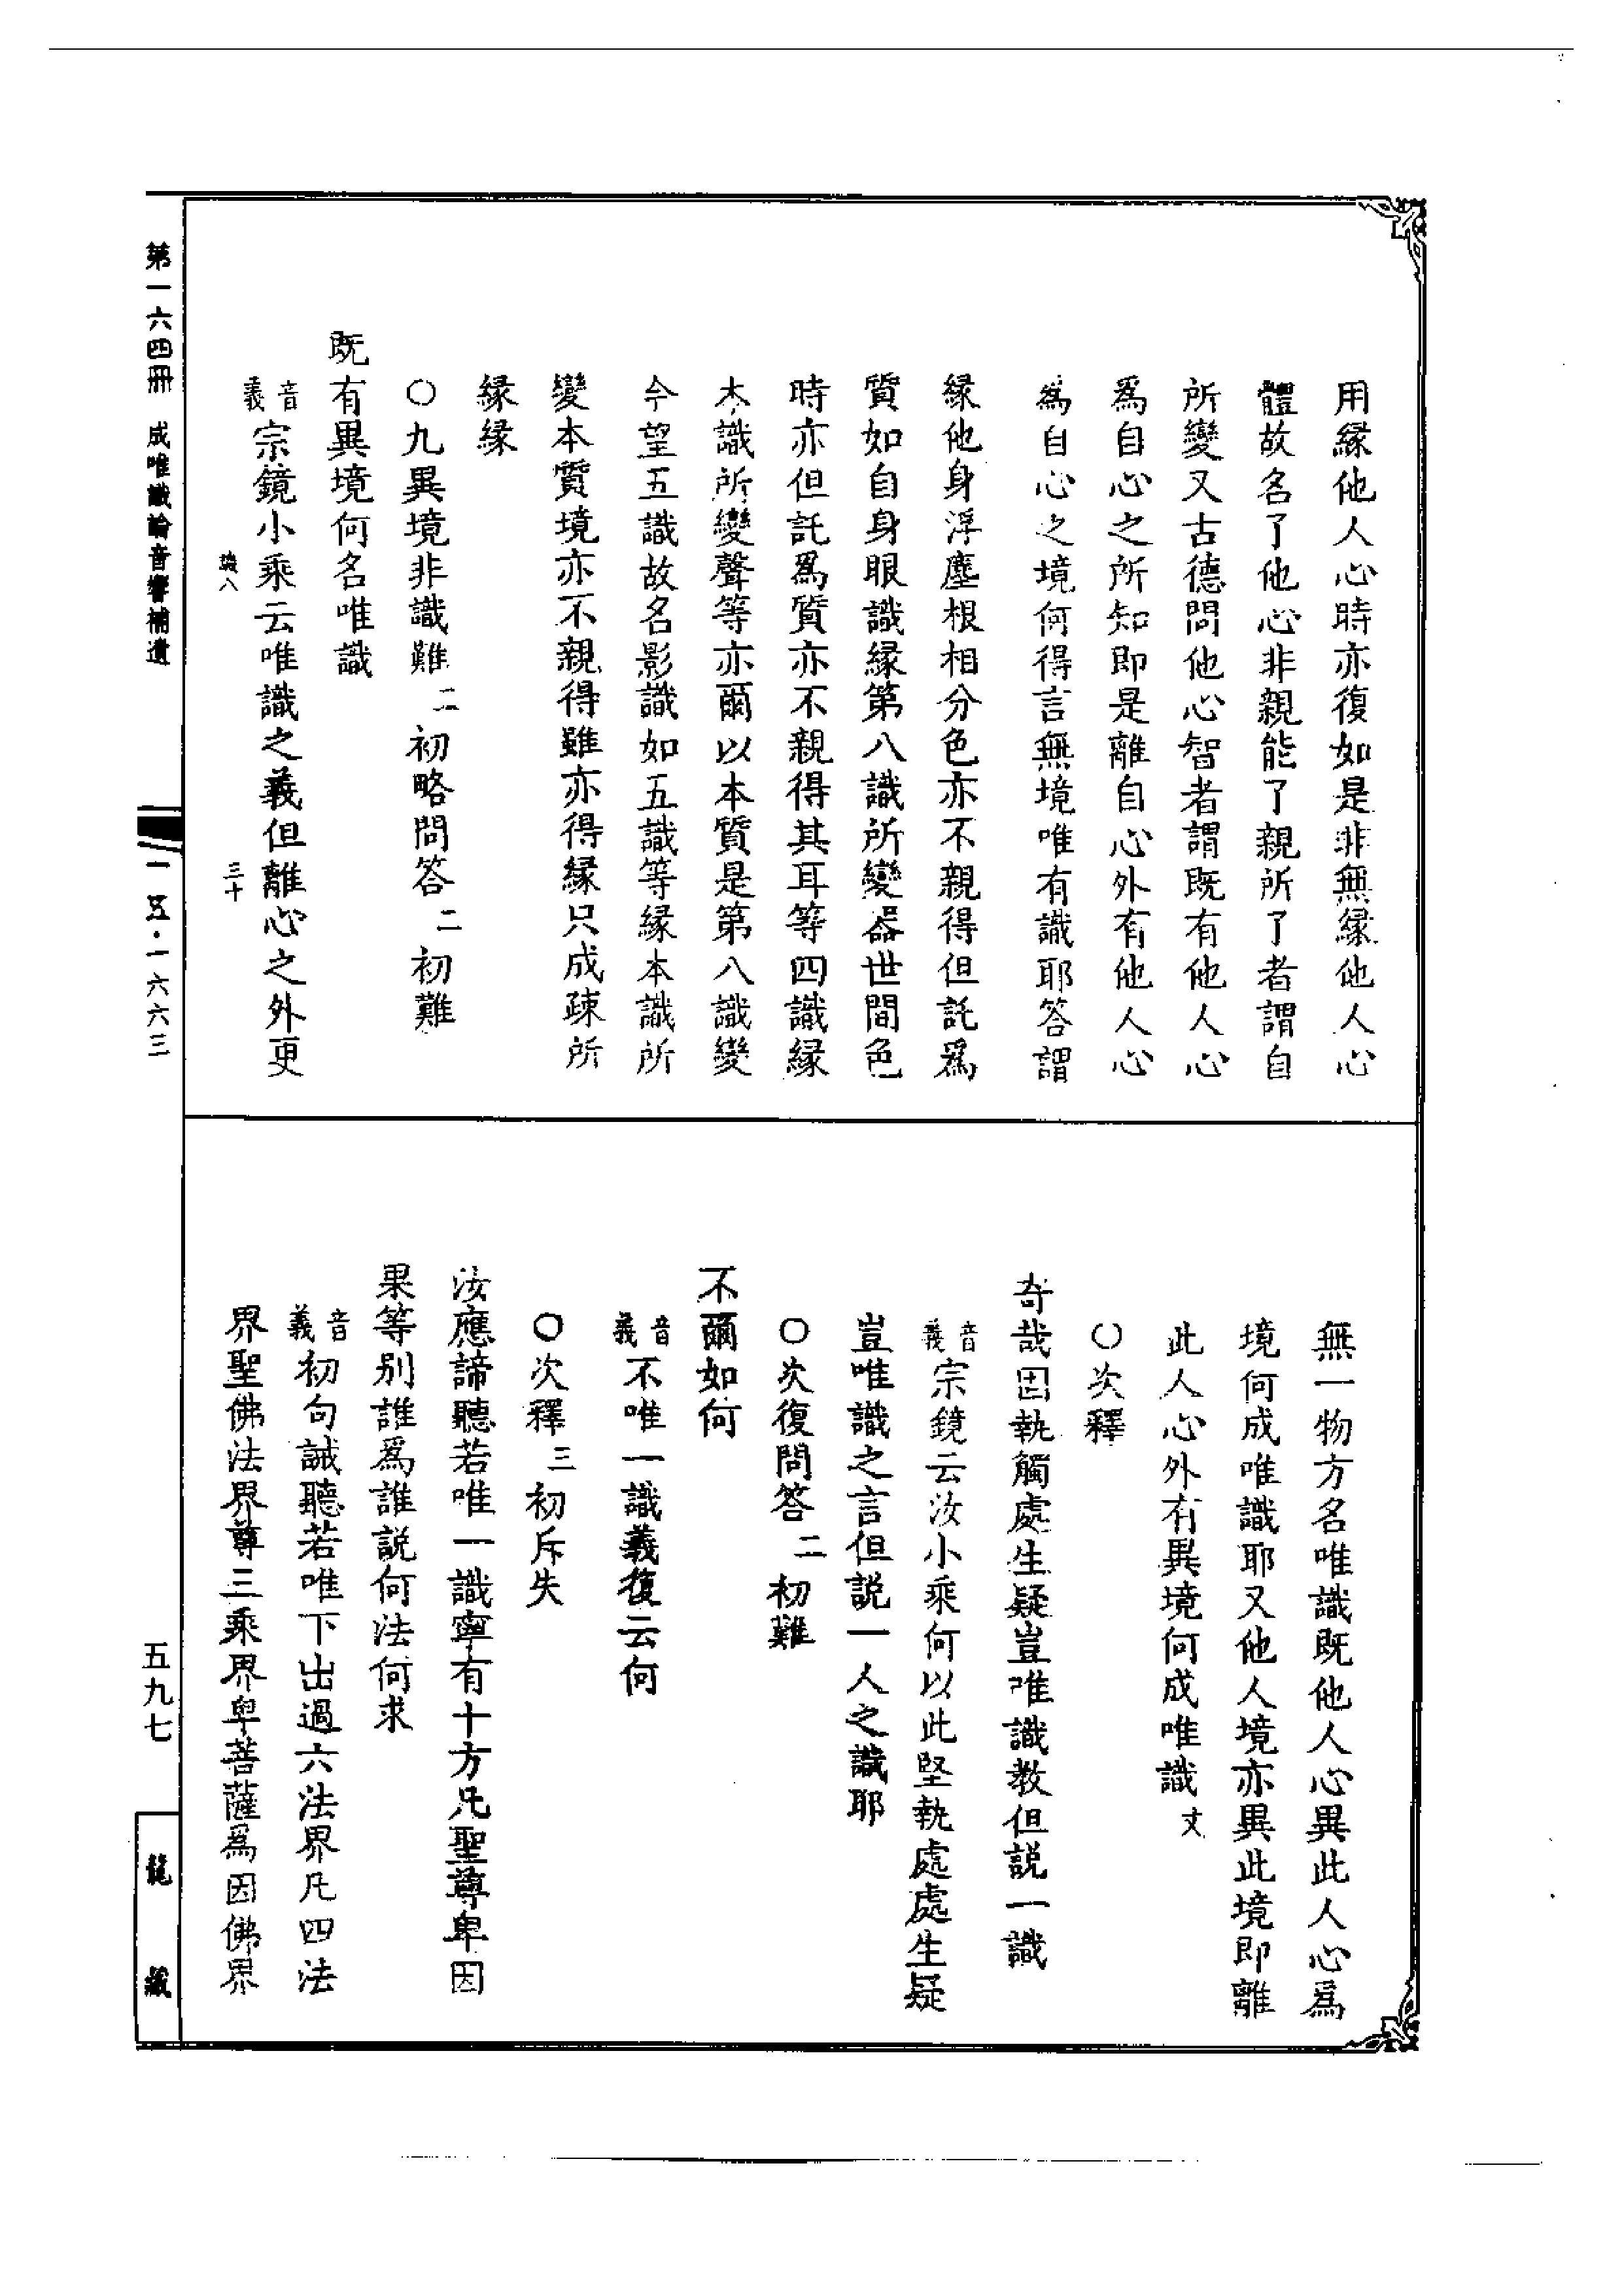 用縁他人心時亦復如是非無縁他人心
體故名了他心非親能了親所了者謂自
所變又古德問他心智者謂既有他人心
爲自心之所知即是離自心外有他人心
爲自心之境何得言無境唯有識耶答謂
縁他身浮塵根相分色亦不親得但託爲
質如自身眼識縁第八識所變器世間色
時亦但託爲質亦不親得其耳等四識縁
本識所變聲等亦爾以本質是第八識變
今望五識故名影識如五識等縁本識所
變本質境亦不親得雖亦得縁只成疎所
縁縁
〇九異境非識難二初略問答二初難
既有異境何名唯識
音義宗鏡小乘云唯識之義但離心之外更
識八 三十
無一物方名唯識既他人心異此人心爲
境何成唯識耶又他人境亦異此境即離
此人心外有異境何成唯識文
〇次釋
奇哉固執觸處生疑豈唯識教但説一識
音義宗鏡云汝小乘何以此堅執處處生疑
豈唯識之言但説一人之識耶
〇次復問答二初難
不爾如何
音義不唯一識義復云何
〇次釋三初斥失
汝應諦聽若唯一識寧有十方凡聖尊卑因
果等别誰爲誰説何法何求
音義初句誡聽若唯下出過六法界凡四法
界聖佛法界尊三乘界卑菩薩爲因佛界
第一六四册 成唯識論音響補遺
一五·一六六三
五九七
龍藏